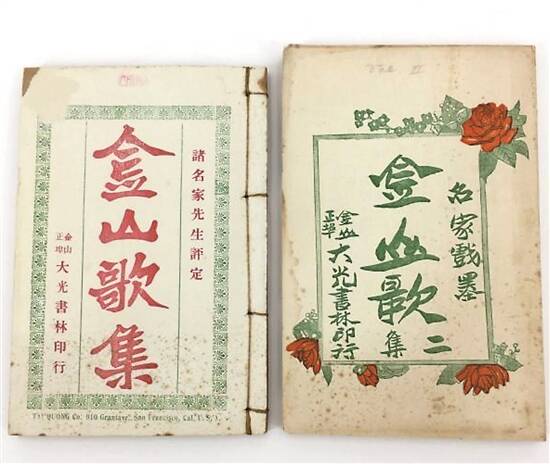 諸名家先生評定
金山歌集
金山
正埠
大光書林印行
TAI QUONG Co. 910 Grantave., San Francisco, Cal., U. S. A.
Vol II
名家戲墨
金山歌二集
金山
正埠
大光書林印行